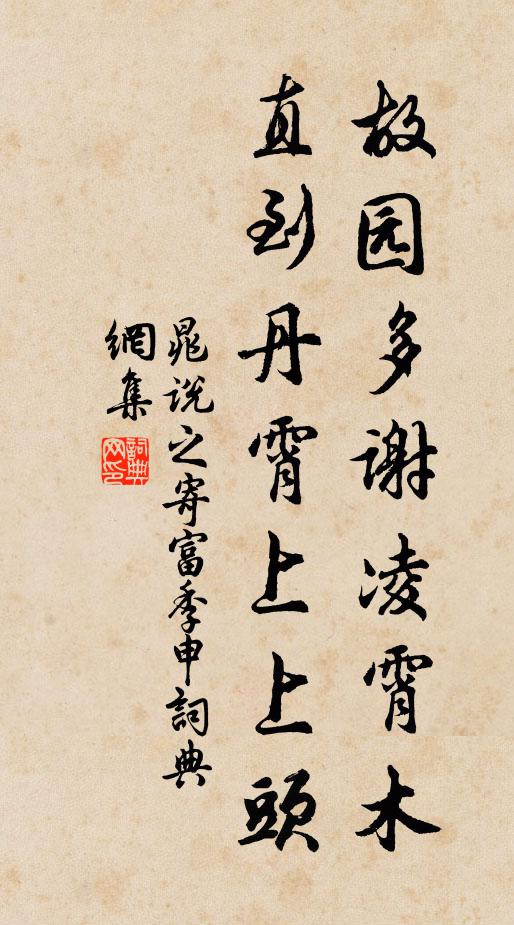 故园多谢凌霄木
直到丹霄上上頭
晁说之寄富季申詞典
網集
詞典网印